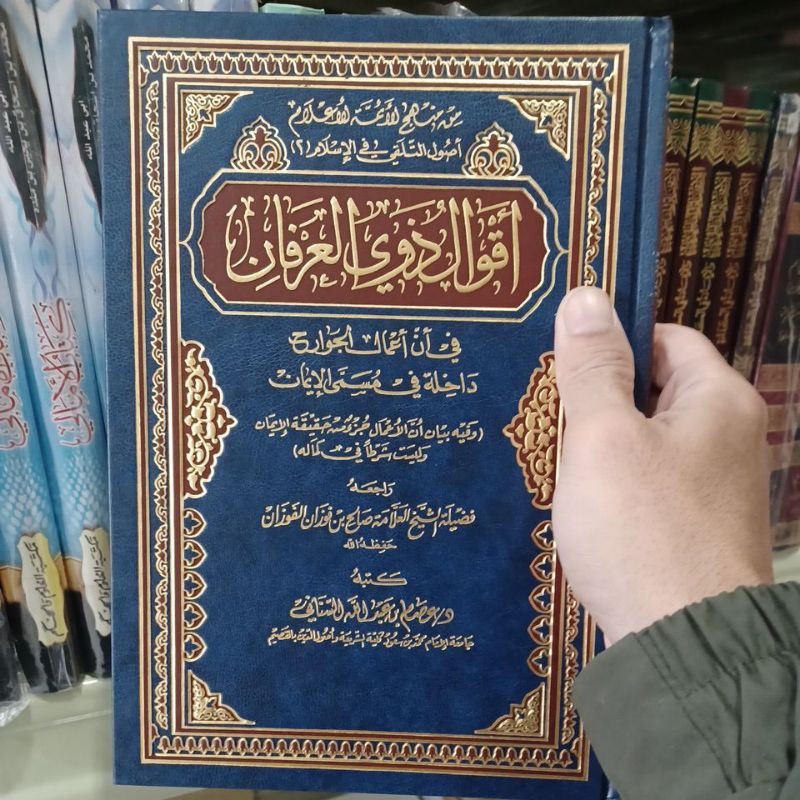 من منهج الأئمة الأعلام
أصول التلقي في الإسلام (٢)
أقوال ذوي العرفان
في أن أعمال الجوارح
داخلة في مسمى الإيمان
(وفيه بيان أنَّ الأعمال جزء من حقيقة الإيمان
وليست شرطاً في كماله)
راجعه
فضيلة الشيخ العلامة صالح بن فوزان الفوزان
حفظه الله
كتبه
د/عصام بن عبد الله السناني
جامعة الإمام محمد بن سعود كلية الشريعة وأصول الدين بالقصيم
كتاب الأمالي
مكتبة العلوم والحكم